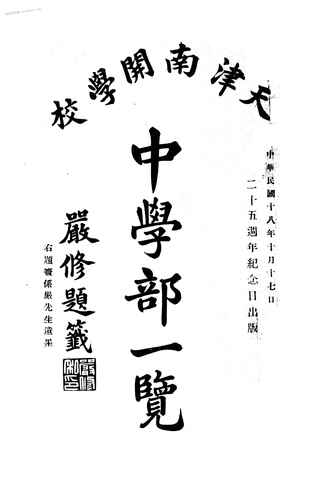 天津南開學校
中華民國十八年十月十七日
二十五週年紀念日出版
中學部一覽
嚴修題籤
右題簽係嚴先生遺墨